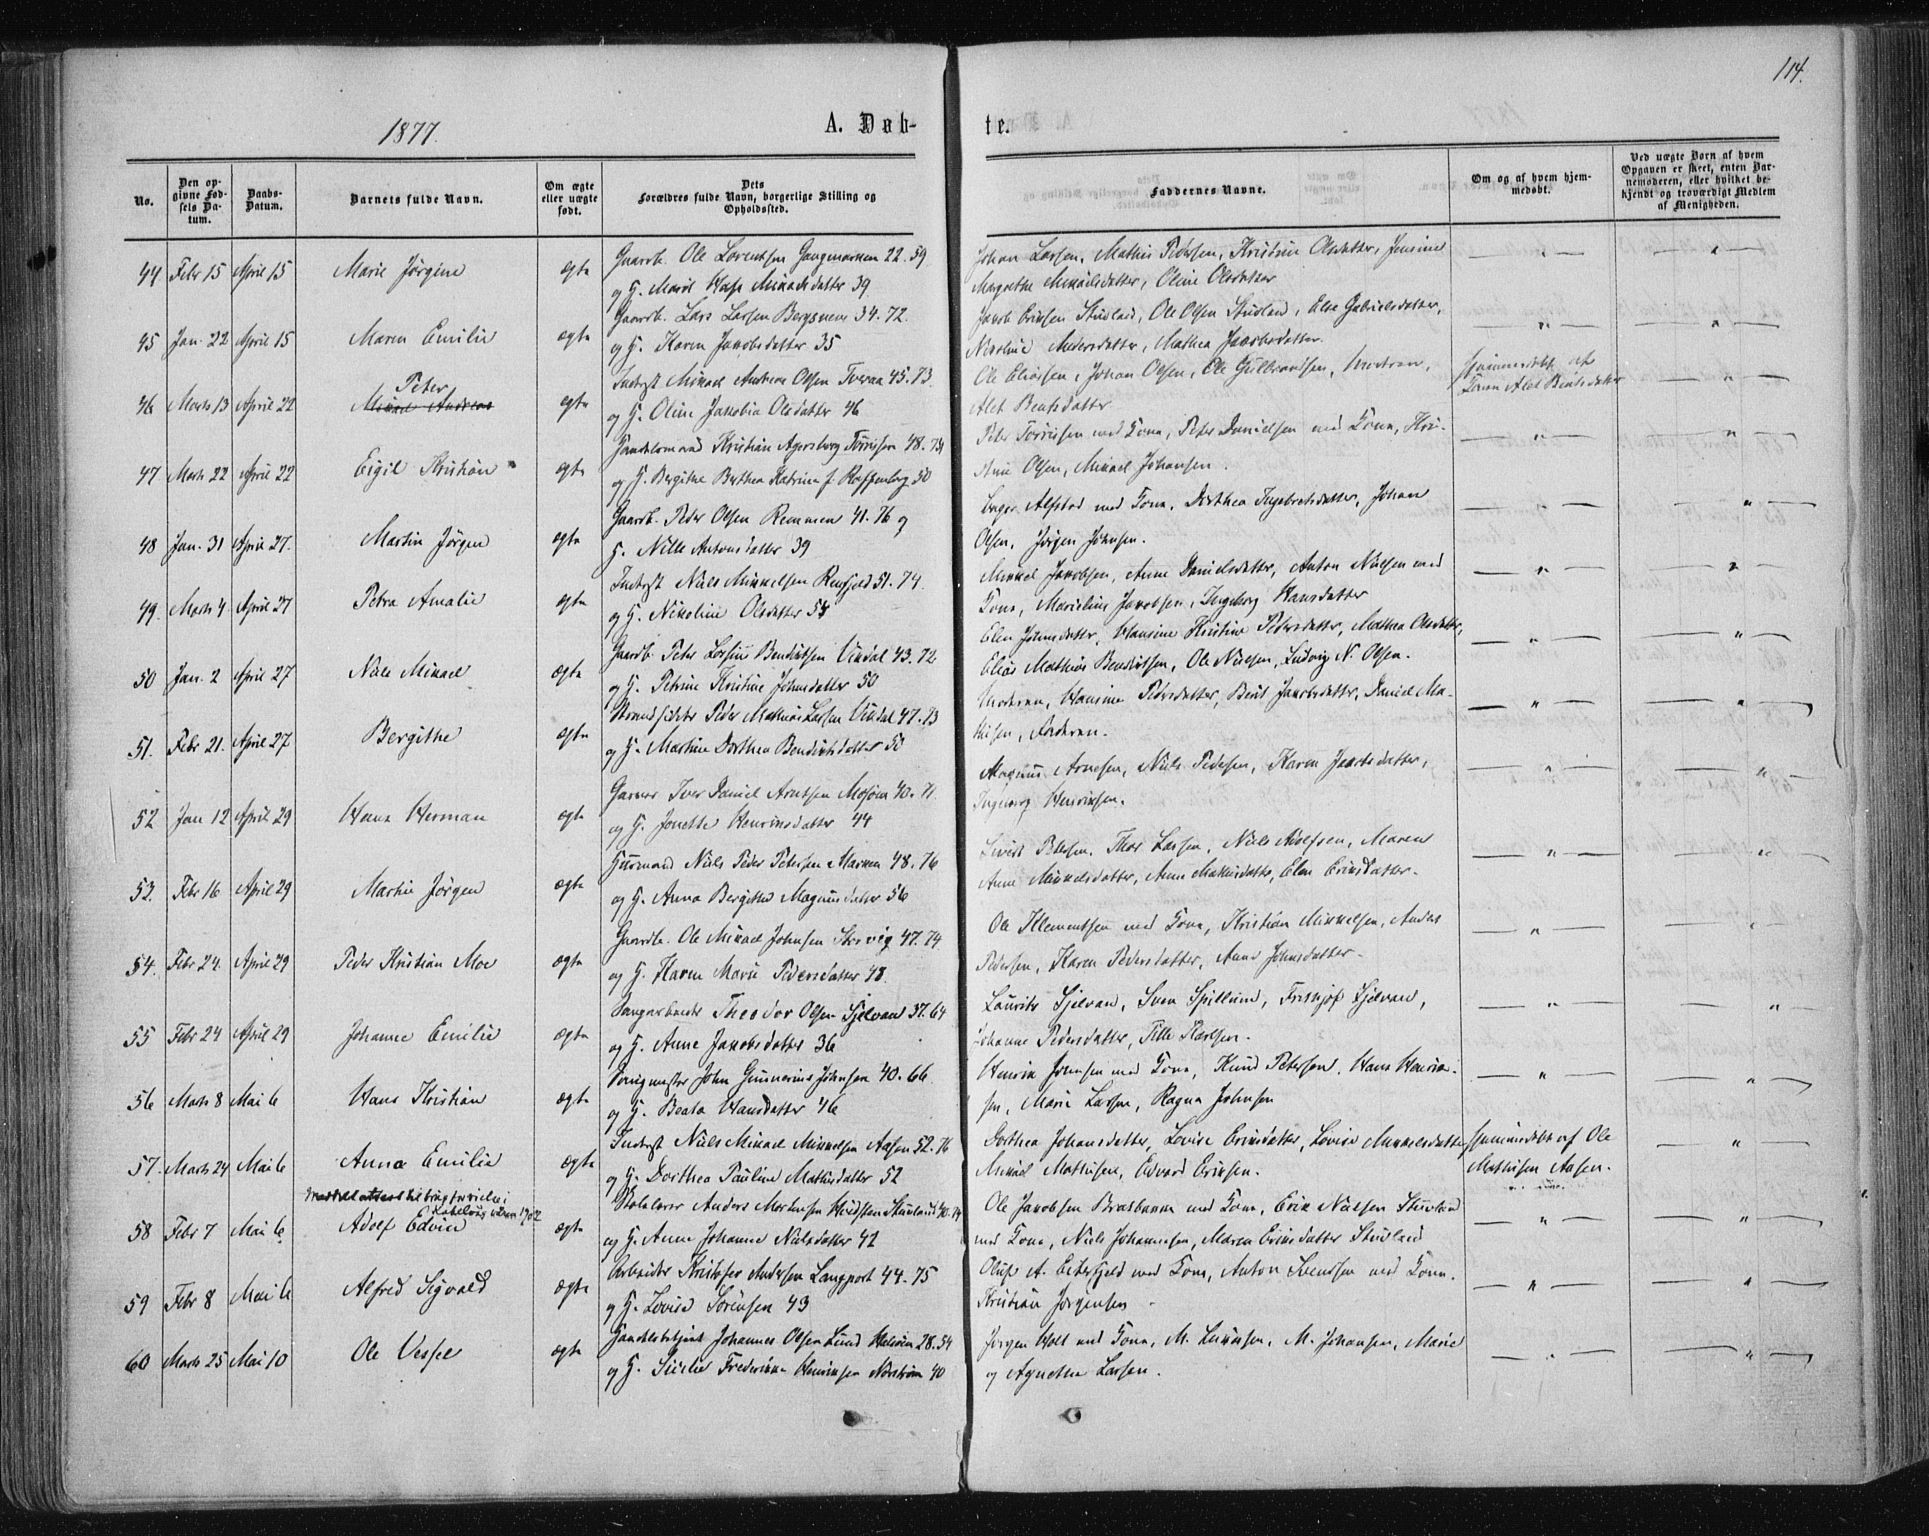 114.
1877.
A. Døb-
te.
No.
Den opgivne Fødsels Datum.
Daabs-Datum.
Barnets fulde Navn.
Om ægte eller uægte født.
Dets Forældres fulde Navn, borgerlige Stilling og Opholdssted.
Faddernes Navne.
Om og af hvem hjemmedøbt.
Ved uægte Børn af hvem Opgaven er skeet, enten Barnemoderen, eller hvilket bekjendt og troværdigt Medlem af Menigheden.
44 Febr 15 April 15 Marie Jørgine ægte Gaardb. Ole Lorentsen 22. 59
og H. Marit Mikkelsdatter 39
Johan Larsen, Mathis Pedersen, Kristine Olsdatter, Jensine
Margrethe Mikkelsdatter, Oline Olsdatter
45 Jan. 22 April 15 Maren Emilie ægte Gaardb. Lars Larsen Bergsnev 34. 72.
og H. Karen Jakobsdatter 35
Jakob Eriksen Stuvland, Ole Olsen Stuvland, Else Gabrielsdatter,
Nikoline Andersdatter, Mathea Jakobsdatter.
46 Marts 13 April 22 Peter Mikael Andreas ægte Inderst Mikael Andreas Olsen Tveraa 45. 73.
og H. Oline Jakobia Olsdatter 46
Ole Eliassen, Johan Olsen, Ole Gulbrandsen, Moderen,
Alet Bentsdatter
Hjemmedøbt af
Kone Alet Bentsdatter
47 Marts 22 April 22 Eigil Kristian ægte Handelsmand Kristian Agersborg Tørrisen 48. 73
og H. Bergithe Berthea Katrine f. Koffenberg 50
Peter Tørrisen med Kone, Peter Danielsen med Kone, Kri-
stine Olsen, Mikael Johansen.
48 Jan. 31 April 27. Martin Jørgen ægte Gaardb. Peder Olsen Remmen 41. 76 og
H. Nille Antonsdatter 39
Alstad med Kone, Dorthea Ingebretsdatter, Johan
Olsen, Jørgen Johnsen.
49. Marts 4 April 27 Petra Amalie ægte Inderst Niels Mikkelsen Remfjeld 51. 74
og H. Nikoline Olsdatter 54
Mikkel Jakobsen, Anne Danielsdatter, Anton Nielsen med
Kone, Marselius Jakobsen, Ingeborg Hansdatter
50 Jan. 2 April 27 Niels Mikael ægte Gaardb. Peter Bendiktsen Vikdal 43. 72
og H. Petrine Kristine Johnsdatter 50
Elen Johnsdatter, Hansine Kristine Pedersdatter, Mathea Olsdatter,
Elias Mathias Bendiktsen, Ole Nielsen, Ludvig N. Olsen.
51. Febr 21. April 27 Bergithe ægte Strandsidder Peder Mathias Larsen Vikdal 47. 73
og H. Martine Dorthea Bendiktsdatter 50
Moderen, Hansine Pedersdatter, Berit Jakobsdatter, Daniel Ma-
thisen, Faderen.
52 Jan 12 April 29 Hans Herman ægte Garver Iver Daniel Arntsen Mosjøen 40. 71
og H. Jonette Henriksdatter 44
Magnus Arnesen, Niels Pedersen, Karen Jakobsdatter,
Ingeborg Henriksen.
53. Febr 16 April 29 Martin Jørgen ægte Huusmand Niels Peder Petersen Marken 48. 76
og H. Anna Bergithe Magnusdatter 56
Sivert Petersen, Thor Larsen, Niels Adolfsen, Maren
Anne Mikkelsdatter, Anne Mathisdatter, Elen Eriksdatter.
54. Febr 24. April 29 Peder Kristian Moe ægte Gaardb. Ole Mikael Johnsen Storvig 47. 74
og H. Karen Marie Pedersdatter 48.
Ole Klementsen med Kone, Kristian Mikkelsen, Anders
Pedersen, Karen Pedersdatter, Anne Johnsdatter.
55 Febr 24 April 29 Johanne Emilie ægte Theodor Olsen Sjelvan 37. 64
og H. Anne Jakobsdatter 36
Laurits Sjelvan, Sven Spillum, Fritjof Sjelvan,
Johanne Pedersdatter, Tille Karlsen.
56 Marts 8 Mai 6 Hans Kristian ægte John Gunnerius Johnsen 40. 66.
og H. Beata Hansdatter 46
Henrik Jensen med Kone, Knud Petersen, Hans Henrik-
sen, Marie Larsen, Ragna Johnsen
57. Marts 24 Mai 6 Anna Emilie ægte Inderst Niels Mikael Mikkelsen Aasen 52. 76
og H. Dorthea Pauline Mathisdatter 52
Dorthea Johansdatter, Lovise Eriksdatter, Lovise Mikkelsdatter,
Mikael Mathisen, Edvard Eriksen.
Hjemmedøbt af Ole
Mathisen Aasen.
58 Febr 7 Mai 6 Adolf Edvin ægte Skolelærer Anders Mortensen Hvidsten Stuvland 40. 74
og H. Anne Johanne Nielsdatter 42
Ole Jakobsen Bratbakken med Kone, Erik Nielsen Stuvland
med Kone, Niels Johannesen, Maren Eriksdatter Stuvland
59 Febr 8 Mai 6 Alfred Sigvald ægte Arbeider Kristofer Andersen Langport 44. 75
og H. Lovise Sørensen 43
Oluf A. med Kone, Anton Svendsen med Kone.
Kristian Jørgensen
60 Marts 25 Mai 10 Ole Vessel ægte Handelsbetjent Johannes Olsen Lund 28. 54
og H. Sicilie Frederikke Henriksen Nordstrøm 40
Jørgen Holt med Kone, M. M. Johansen, Marie
og Agnethe Larsen.